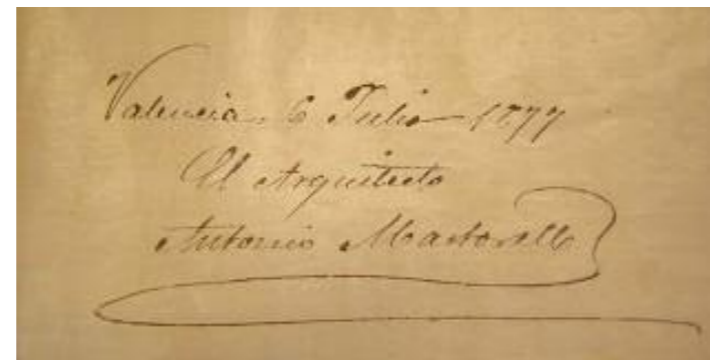 Valencia 6 Julio 1877
El Arquitecto
Antonio Martorell